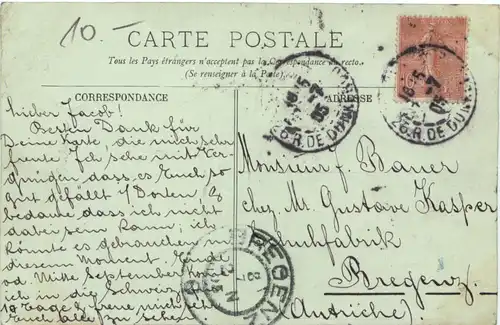 10 -
CARTE POSTALE
Tous les Pays étrangers n'acceptent pas la Correspondance au recto.
(Se renseigner à la Poste).
CORRESPONDANCE
Lieber Jacob!
Besten Dank für
Deine Karte, die mich sehr
freute. Ich sehe mit Ver
gnügen dass es Euch so
gut gefällt
bedaure dass ich nicht
dabei sein kann; ich
könnte es gebrauchen in
diesem Moment. Ende
od. Mitte September komme
ich in die Schweiz
10 Tage & freue mich
Euch alle zu sehen.
ADRESSE
Monsieur J. Bauer
chez Mr. Gustave Kasper
Bregenz
(Autriche)
BREGENZ
R. DE DUNKERQUE